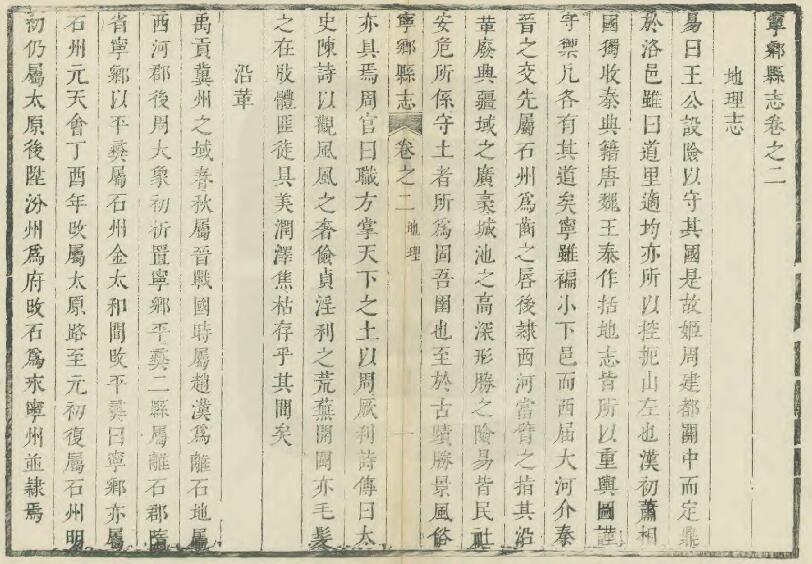 寧鄉縣志卷之二
地理志
易曰王公設險以守其國是故姬周建都關中而定鼎
於洛邑雖曰道里適均亦所以控扼山左也漢初蕭相
國獨收秦典籍唐魏王泰作括地志皆所以重輿圖謹
守禦凡各有其道矣寧雖褊小下邑而西屆大河介秦
晉之交先屬石州爲齒之唇後隸西河當臂之指其沿
革廢興疆域之廣袤城池之高深形勝之險易皆民社
安危所係守土者所爲固吾圉也至於古蹟勝景風俗
寧鄉縣志
卷之二
地理
一
亦具焉周官曰職方掌天下之土以周厥利詩傳曰太
史陳詩以觀風風之奢儉貞淫利之荒蕪開闢亦毛髮
之在肢體匪徒具美潤澤焦枯存乎其間矣
沿革
禹貢冀州之域春秋屬晉戰國時屬趙漢爲離石地屬
西河郡後周大象初析置寧鄉平彞二縣屬離石郡隋
省寧鄉以平彞屬石州金太和間改平彞曰寧鄉亦屬
石州元天會丁酉年改屬太原路至元初復屬石州明
初仍屬太原後陞汾州爲府改石爲永寧州並隸焉